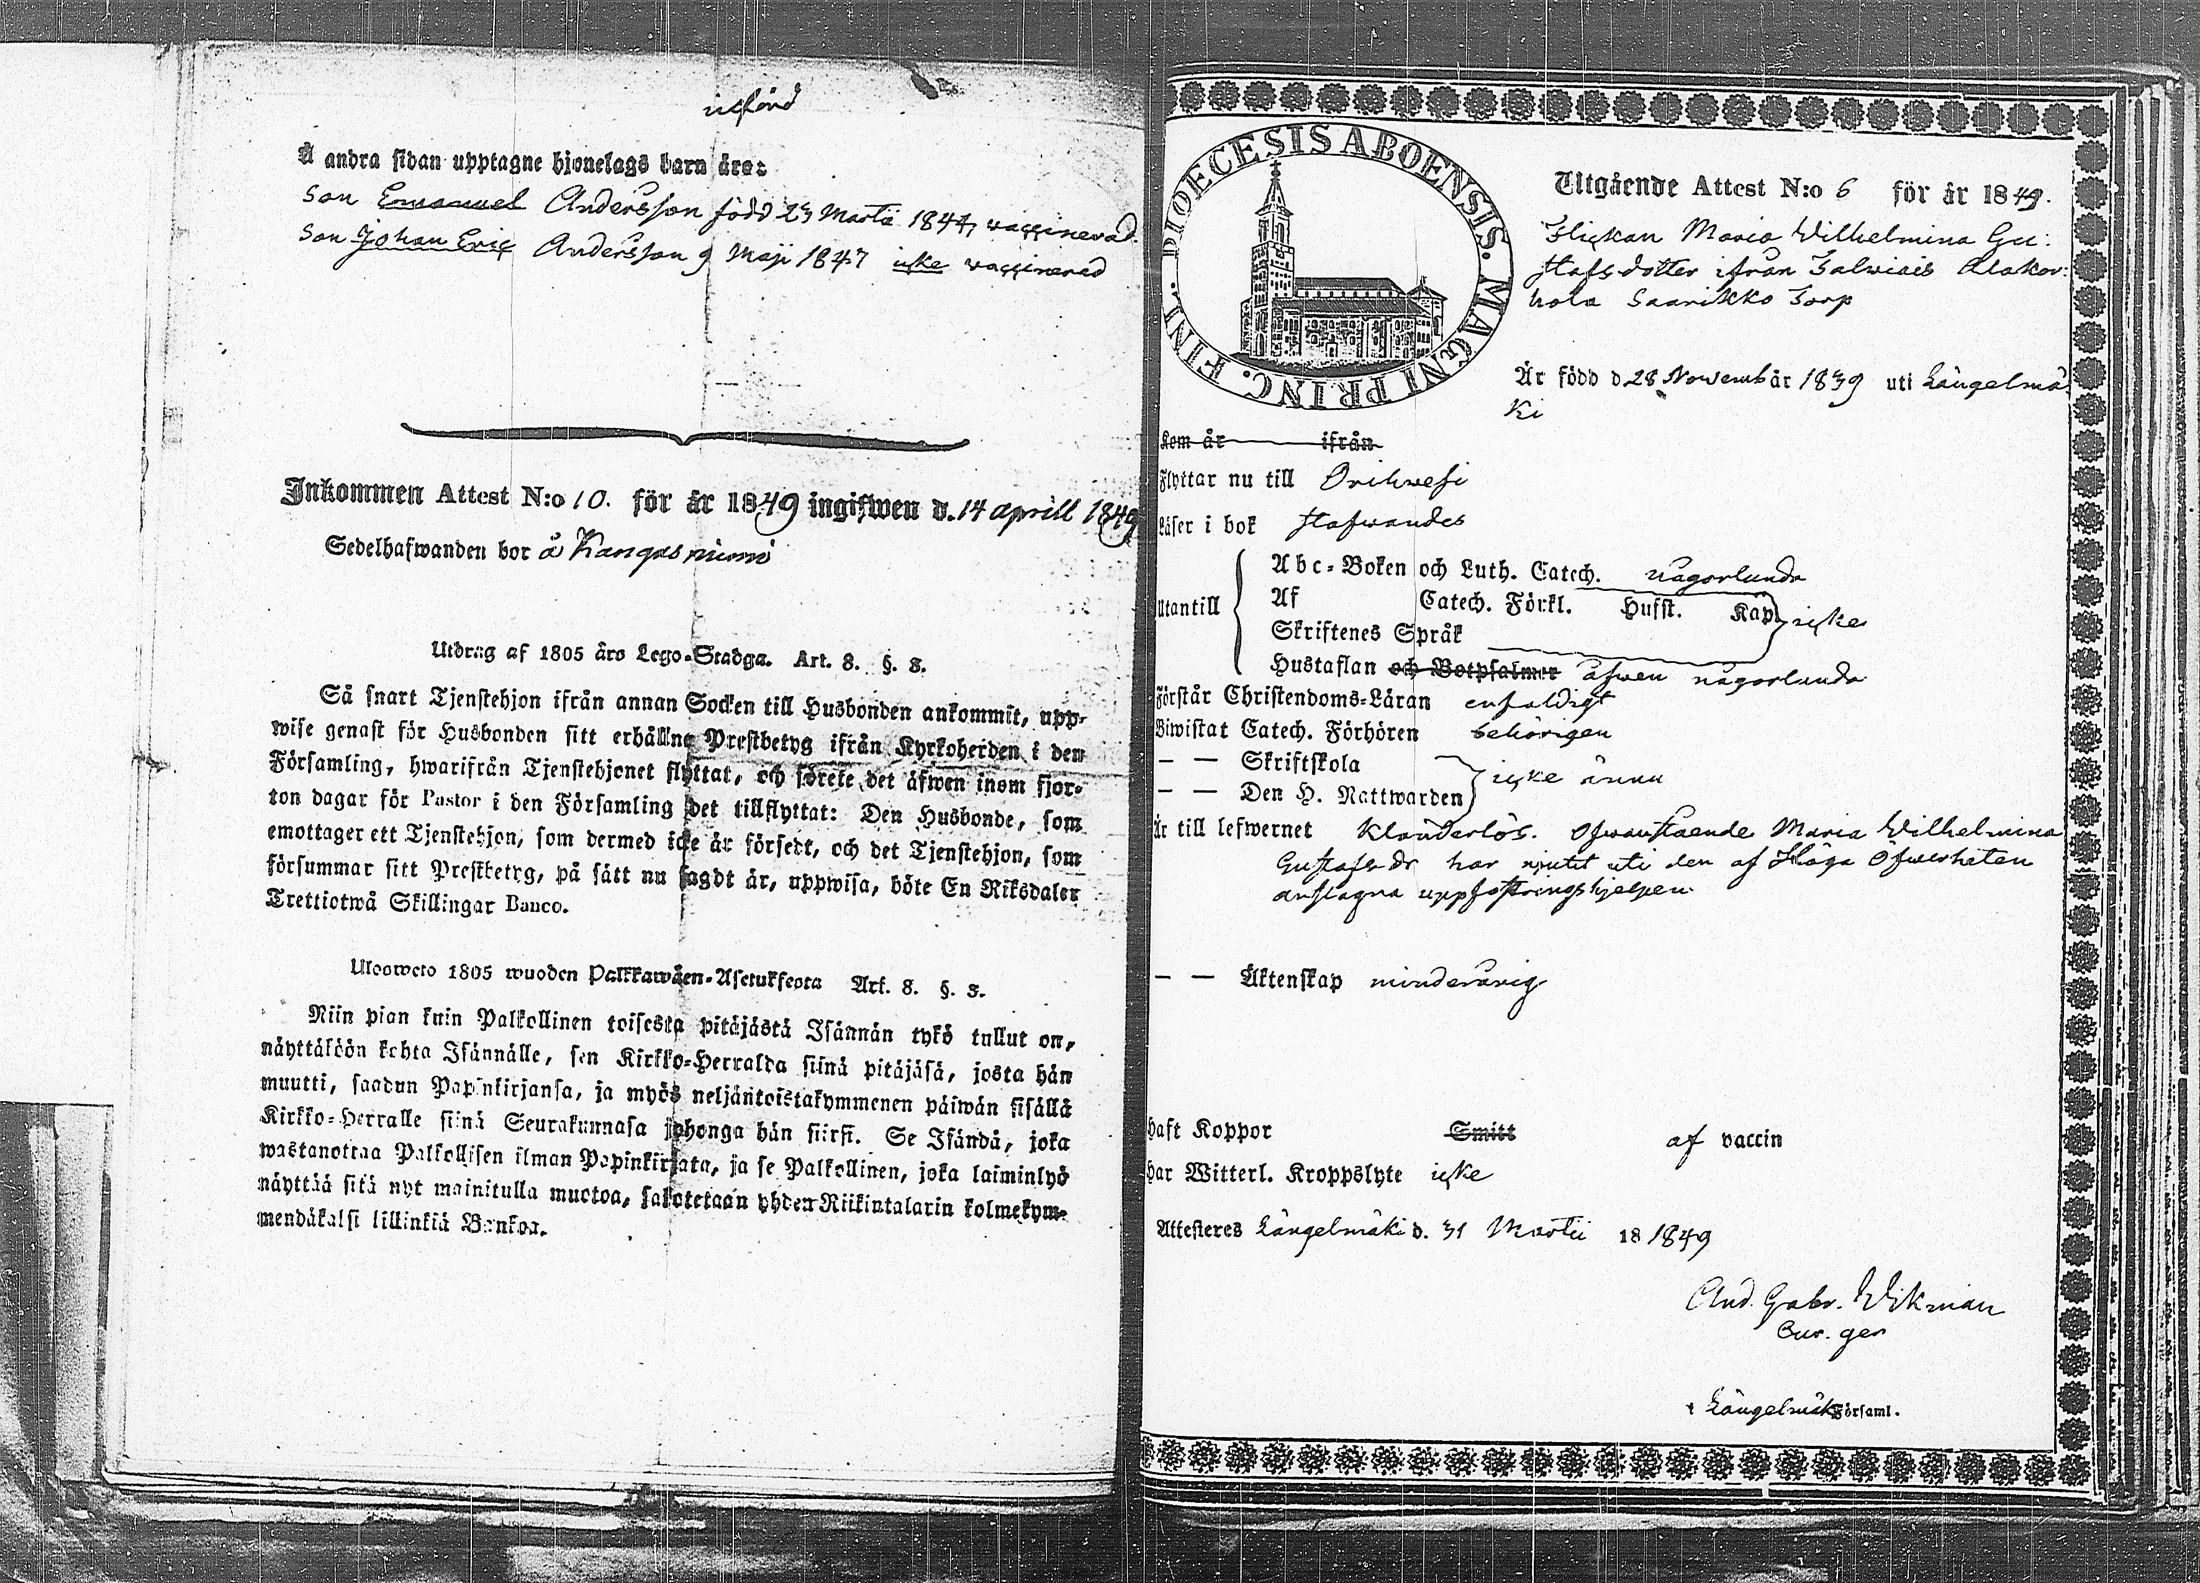 utförd
Å andra sidan upptagne hjonelags barn äro:
Son Emanuel Andersson född 23 Martii 1844, vaccinerad.
Son Johan Eric Andersson 9 Maji 1847 icke vaccinerad
Inkommen Attest N:o 10. för år 1849 ingifwen d. 14 aprill 1849
Sedelhafwanden bor å Kangasniemi
Utdrag af 1805 års Lego-Stadga. Art. 8. §. 3.
Så snart Tjenstehjon ifrån annan Socken till Husbonden ankommit, upp-
wise genast för Husbonden sitt erhållne Prestbetyg ifrån Kyrkoherden i den
Församling, hwarifrån Tjenstehjonet flyttat, och förete det äfwen inom fjor-
ton dagar för Pastor i den Församling det tillflyttat: Den Husbonde, som
emottager ett Tjenstehjon, som dermed icke är försedt, och det Tjenstehjon, som
försummar sitt Prestbetyg, på sätt nu sagdt är, uppwisa, böte En Riksdaler
Trettiotwå Skillingar Banco.
Ulosweto 1805 wuoden Palkkawäen-Asetuksesta Art. 8. §. 3.
Niin pian kuin Palkollinen toisesta pitäjästä Isännän tykö tullut on,
näyttäköön kohta Isännälle, sen Kirkko-Herralda siinä pitäjäsä, josta hän
muutti, saadun Papinkirjansa, ja myös neljäntoistakymmenen päiwän sisällä
Kirkko-Herralle siinä Seurakunnasa johonga hän siirsi. Se Isändä, joka
wastanottaa Palkollisen ilman Papinkirjata, ja se Palkollinen, joka laiminlyö
näyttää sitä nyt mainitulla muotoa, sakotetaan yhden Riikintalarin kolmekym-
mendäkaksi killinkiä Bankoa.
DIOECESIS ABOENSIS. MAGNI PRINC. FINL.
Utgående Attest N:o 6 för år 1849.
Flickan Maria Wilhelmina Gu:
stafsdotter ifrån Talwiais Alakor:
hola Saarikko Torp
Är född d 28 Novemb år 1839 uti Längelmä
ki
Kom år ifrån
Flyttar nu till Orihwesi
Läser i bok stafwandes
Abc-Boken och Luth. Catech. någorlunda
Utantill Af Catech. Förkl. Husst. Kap icke
Skriftenes Språk
Hustaflan och Botpsalmer äfwen någorlunda
Förstår Christendoms-Läran enfaldigt
Biwistat Catech. Förhören behörigen
— — Skriftskola
— — Den H. Nattwarden icke ännu
Är till lefwernet klanderlös. Ofwanstaende Maria Wilhelmina
Gustafsdr har njutit uti den af Höga Öfwerheten
anslagna uppfostringshjelpen
— — Äktenskap minderårig
Haft Koppor Smitt af vaccin
Har Witterl. Kroppslyte icke
Attesteres Längelmäki d. 31 Martii 18 1849
And. Gabr. Wikman
Cur. ger
i Längelmäki Församl.